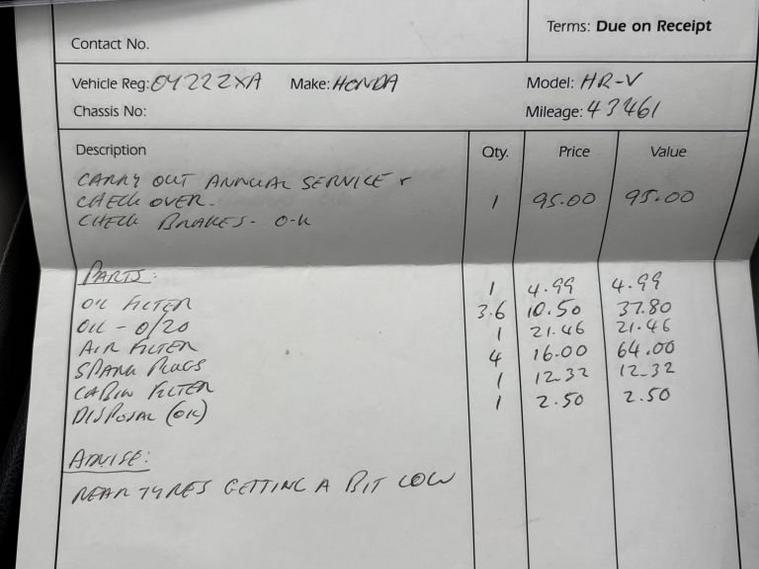 Terms: Due on Receipt
Contact No.
Vehicle Reg: OY22ZXA Make: HONDA Model: HR-V
Chassis No: Mileage: 43461
Description Qty. Price Value
CARRY OUT ANNUAL SERVICE +
CHECK OVER. 1 95.00 95.00
CHECK BRAKES - O-K
PARTS:
OIL FILTER 1 4.99 4.99
OIL - 0/20 3.6 10.50 37.80
AIR FILTER 1 21.46 21.46
SPARK PLUGS 4 16.00 64.00
CABIN FILTER 1 12.32 12.32
DISPOSAL (OIL) 1 2.50 2.50
ADVISE:
REAR TYRES GETTING A BIT LOW